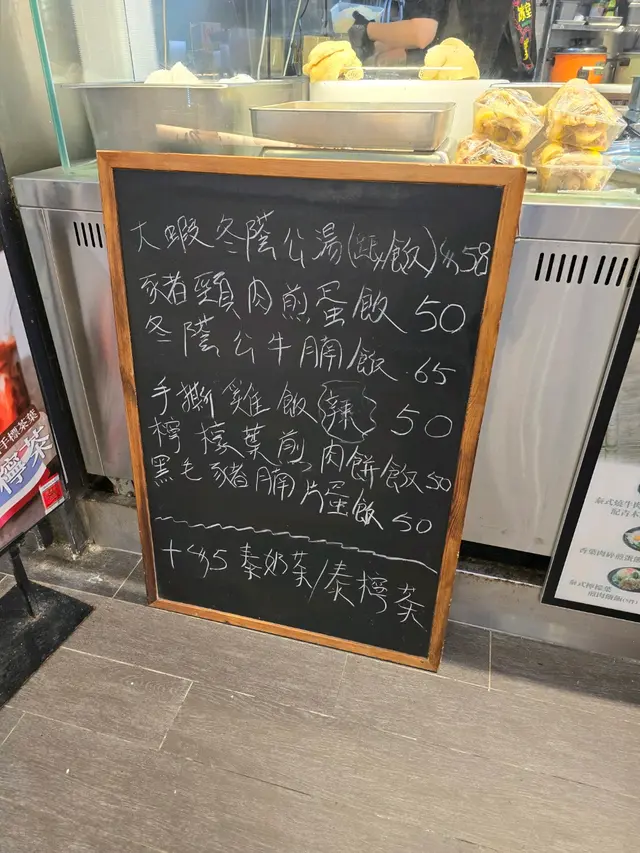 大蝦冬蔭公湯(麵/飯) $58
豬頸肉煎蛋飯 50
冬蔭公牛腩飯 .65
手撕雞飯 辣 50
檸檬葉煎肉餅飯 50
黑毛豬腩片蛋飯 50
+$5 泰奶茶/泰檸茶
手檸茶葉
檸茶
泰式燒牛肉
香葉肉碎煎蛋飯
泰式檸檬葉